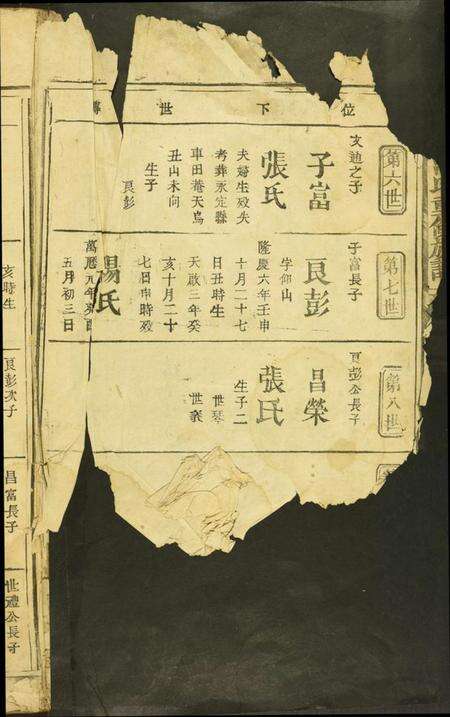 位下世
第六世
文迪之子
子富
張氏
夫婦生歿失
考葬永定縣
車田菴天烏
丑山未向
生子
良彭
第七世
子富長子
良彭
字仰山
隆慶六年壬申
十月二十七
日丑時生
天啟三年癸
亥十月二十
七日申時歿
楊氏
萬曆九年
五月初三日
第八世
良彭公長子
昌榮
張氏
生子二
世琴
亥時生
良彭次子
昌富長子
世禮公長子